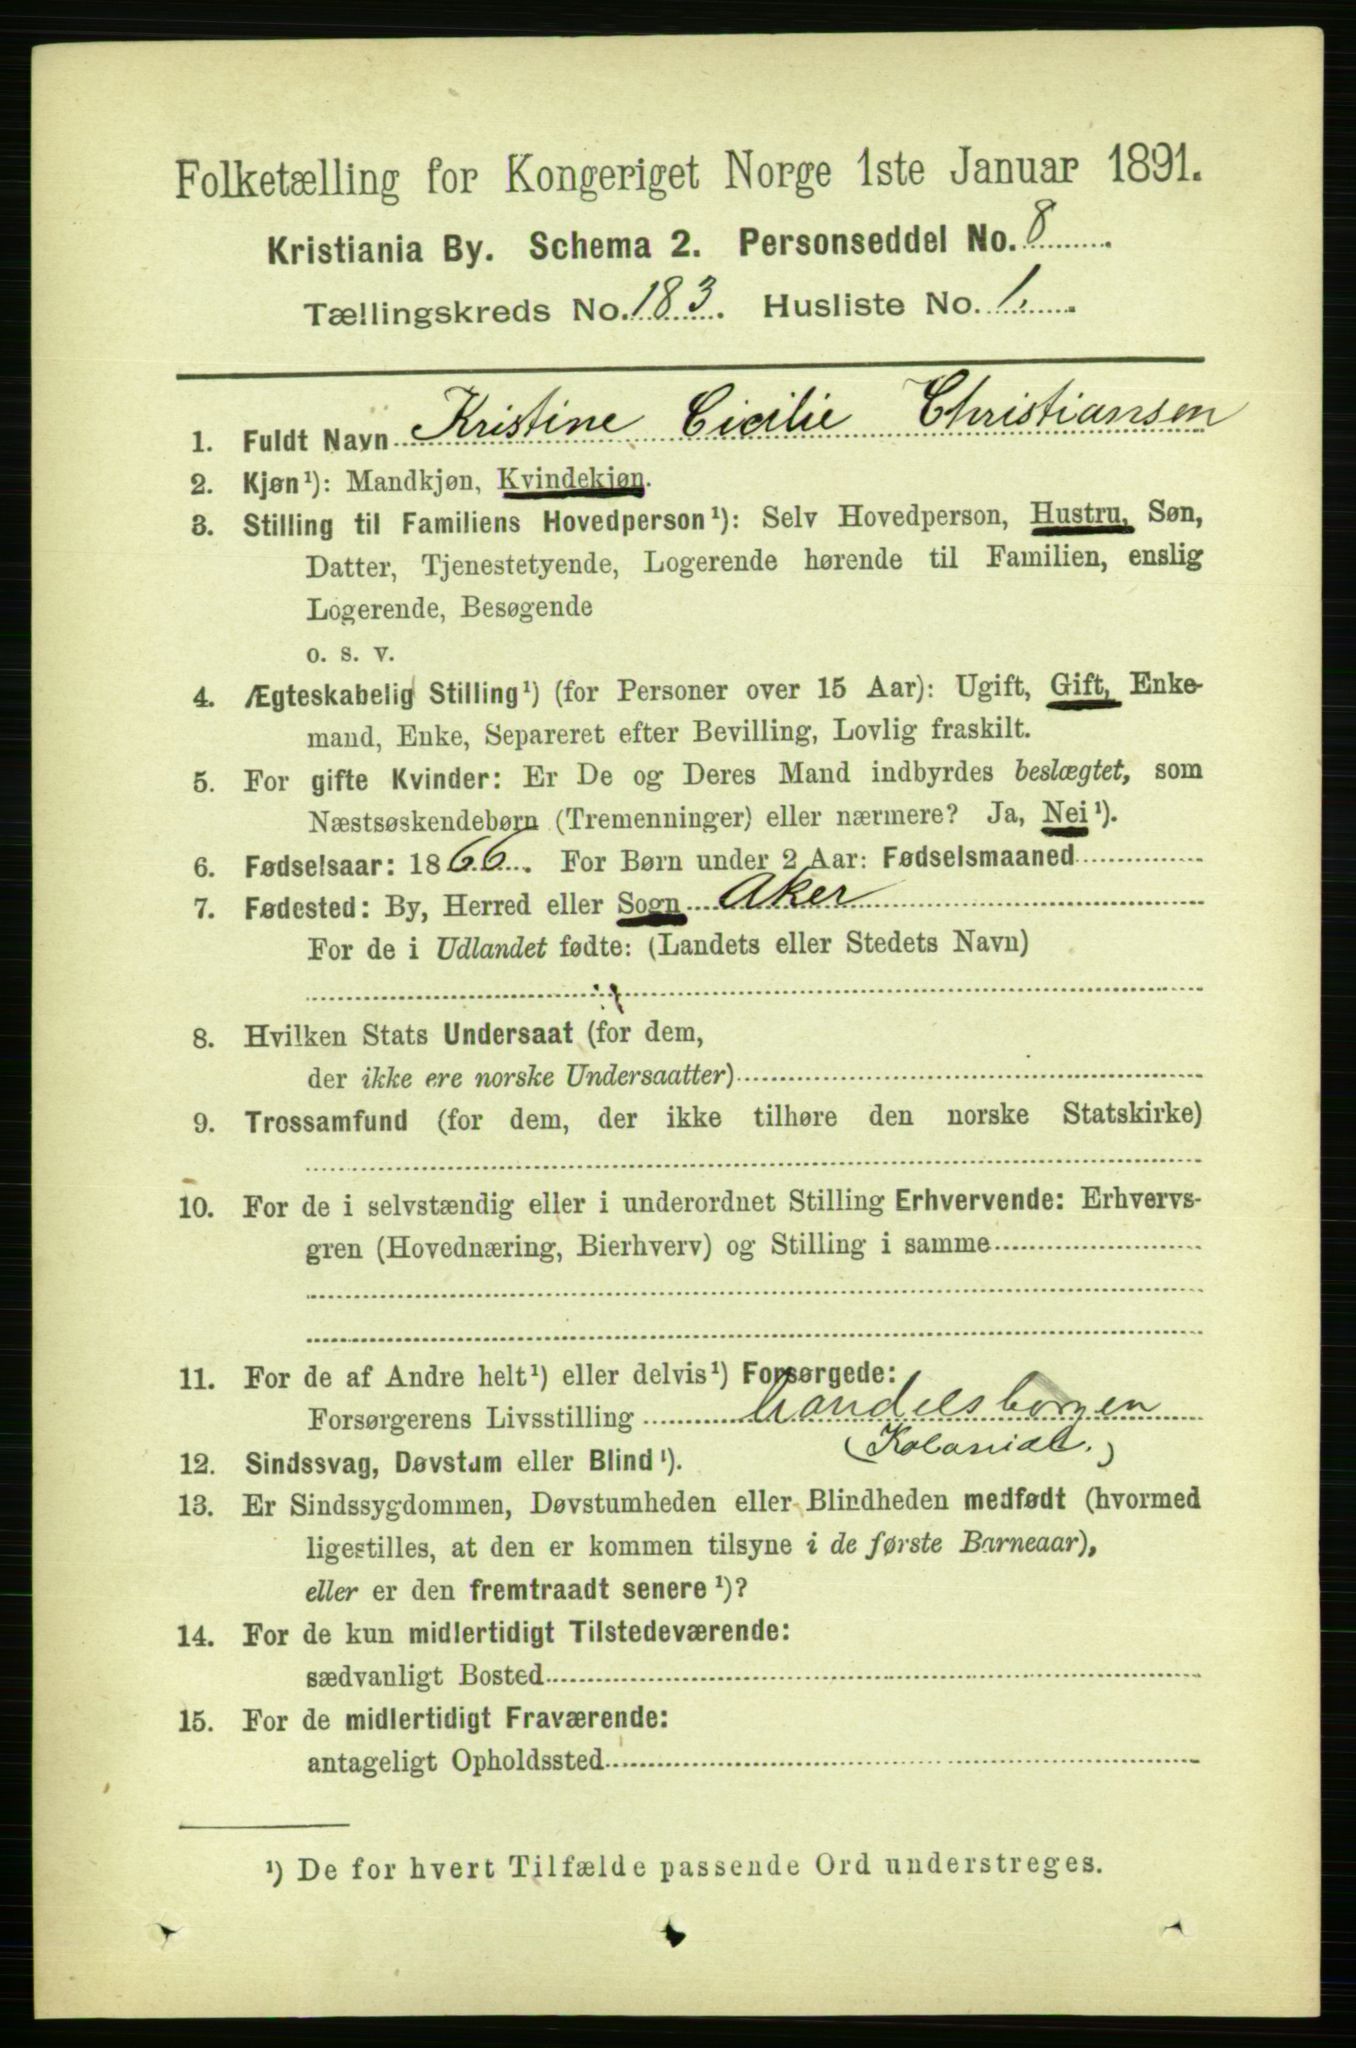 Folketælling for Kongeriget Norge 1ste Januar 1891.
Kristiania By. Schema 2. Personseddel No. 8
Tællingskreds No. 183. Husliste No. 1.
1. Fuldt Navn Kristine Cicilie Christiansen
2. Kjøn¹): Mandkjøn, Kvindekjøn.
3. Stilling til Familiens Hovedperson¹): Selv Hovedperson, Hustru, Søn,
Datter, Tjenestetyende, Logerende hørende til Familien, enslig
Logerende, Besøgende
o. s. v.
4. Ægteskabelig Stilling¹) (for Personer over 15 Aar): Ugift, Gift, Enke-
mand, Enke, Separeret efter Bevilling, Lovlig fraskilt.
5. For gifte Kvinder: Er De og Deres Mand indbyrdes beslægtet, som
Næstsøskendebørn (Tremenninger) eller nærmere? Ja, Nei¹).
6. Fødselsaar: 1866. For Børn under 2 Aar: Fødselsmaaned
7. Fødested: By, Herred eller Sogn Aker
For de i Udlandet fødte: (Landets eller Stedets Navn)
8. Hvilken Stats Undersaat (for dem,
der ikke ere norske Undersaatter)
9. Trossamfund (for dem, der ikke tilhøre den norske Statskirke)
10. For de i selvstændig eller i underordnet Stilling Erhvervende: Erhvervs-
gren (Hovednæring, Bierhverv) og Stilling i samme
11. For de af Andre helt¹) eller delvis¹) Forsørgede:
Forsørgerens Livsstilling handelsborgen
(Kolonial.)
12. Sindssvag, Døvstum eller Blind¹).
13. Er Sindssygdommen, Døvstumheden eller Blindheden medfødt (hvormed
ligestilles, at den er kommen tilsyne i de første Barneaar),
eller er den fremtraadt senere¹)?
14. For de kun midlertidigt Tilstedeværende:
sædvanligt Bosted
15. For de midlertidigt Fraværende:
antageligt Opholdssted
¹) De for hvert Tilfælde passende Ord understreges.